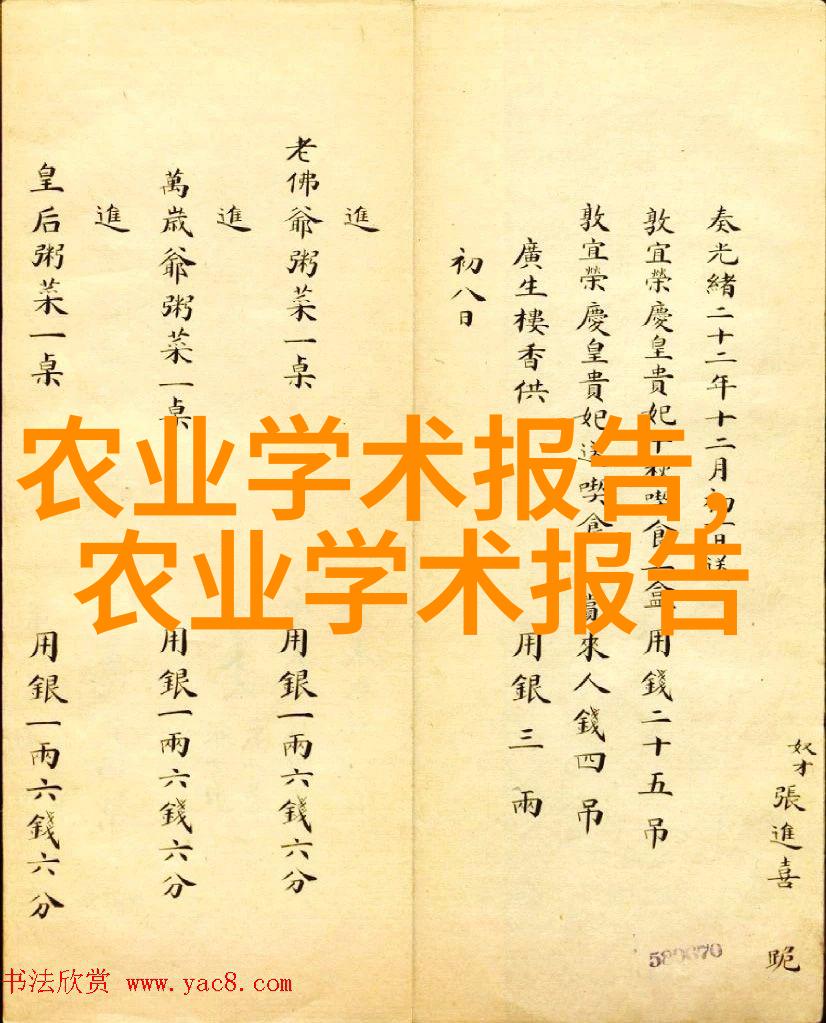 奴才張進喜 跪
奏光緒二十二年十二月初一日送
敦宜榮慶皇貴妃千秋喫食一盒用錢二十五吊
敦宜榮慶皇貴妃送喫食 來人錢四吊
廣生樓香供 用銀三兩
初八日
進
老佛爺粥菜一桌 用銀一兩六錢六分
進
萬歲爺粥菜一桌 用銀一兩六錢六分
進
皇后粥菜一桌 用銀一兩六錢六分
农业学术报告,
农业学术报告
书法欣赏 www.yac8.com